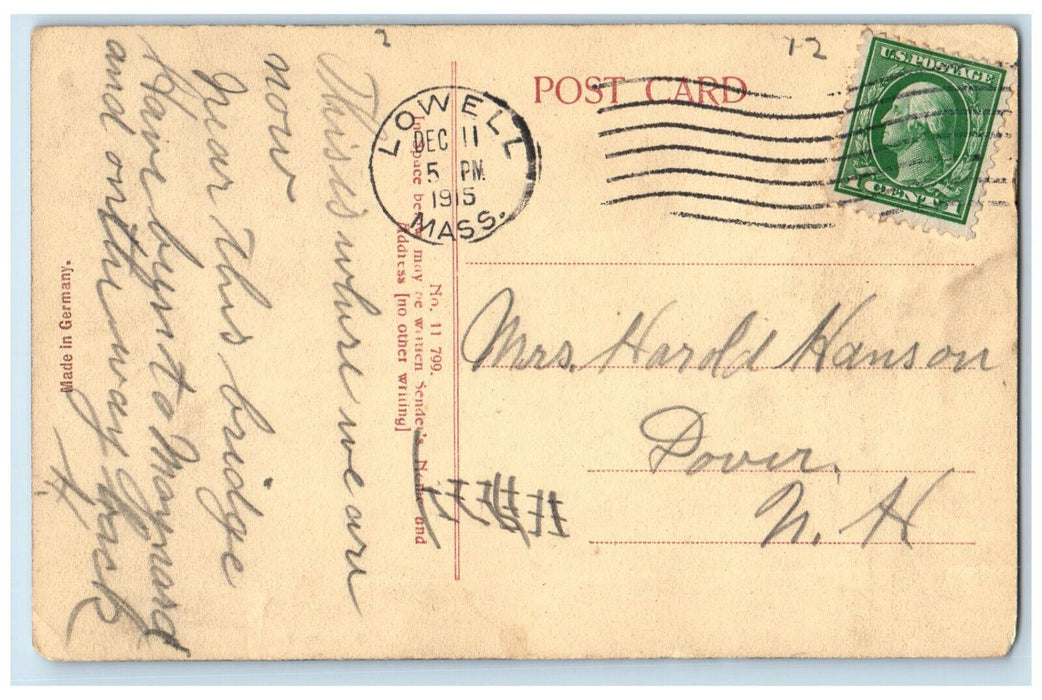 POST CARD
1-2
U.S. POSTAGE
1 CENT 1
LOWELL
DEC 11
5 PM
1915
MASS.
No. 11 799.
In space below may be written Sender's Name and
Address [no other writing]
Made in Germany.
This is where we are
now
near this bridge
Have by to Maynard
and on the way back
H.
Mrs. Harold Hanson
Dover,
N. H